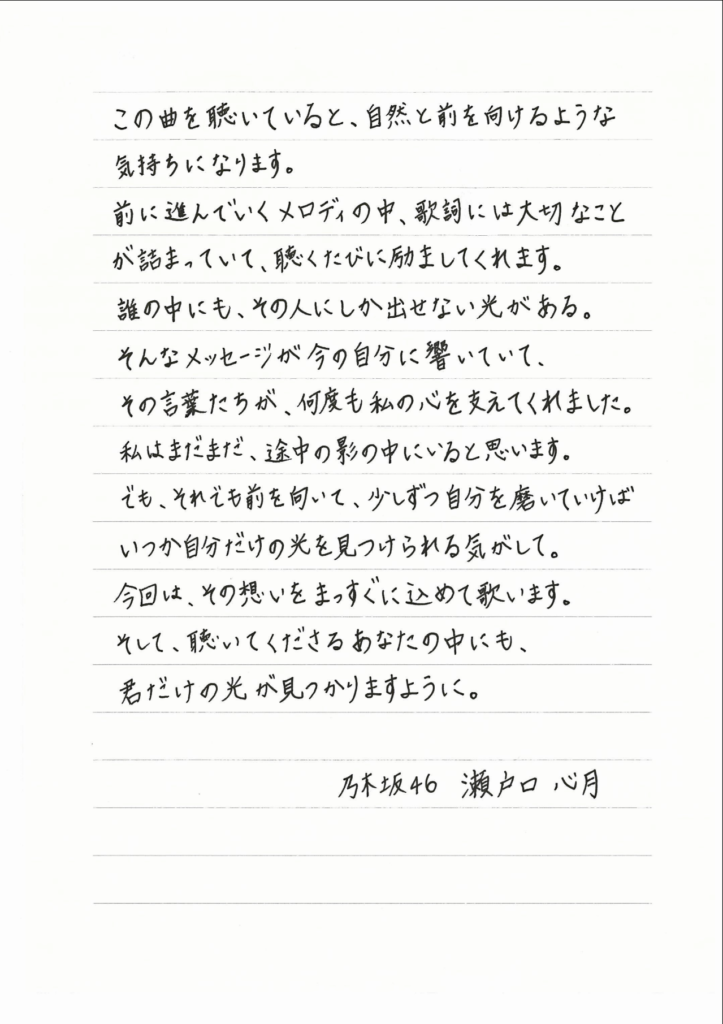 この曲を聴いていると、自然と前を向けるような
気持ちになります。
前に進んでいくメロディの中、歌詞には大切なこと
が詰まっていて、聴くたびに励ましてくれます。
誰の中にも、その人にしか出せない光がある。
そんなメッセージが今の自分に響いていて、
その言葉たちが、何度も私の心を支えてくれました。
私はまだまだ、途中の影の中にいると思います。
でも、それでも前を向いて、少しずつ自分を磨いていけば
いつか自分だけの光を見つけられる気がして。
今回は、その想いをまっすぐに込めて歌います。
そして、聴いてくださるあなたの中にも、
君だけの光が見つかりますように。
乃木坂46 瀬戸口 心月